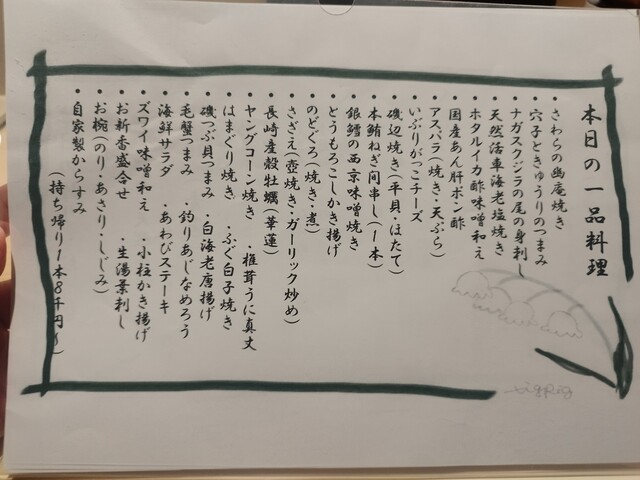 本日の一品料理
・さわらの幽庵焼き
・穴子ときゅうりのつまみ
・ナガスクジラの尾の身刺し
・天然活車海老塩焼き
・ホタルイカ酢味噌和え
・国産あん肝ポン酢
・アスパラ(焼き・天ぷら)
・いぶりがっこチーズ
・磯辺焼き(平貝・ほたて)
・本鮪ねぎ間串し(1本)
・銀鱈の西京味噌焼き
・どうもろこしかき揚げ
・のどくろ(焼き・煮)
・さざえ(壺焼き・ガーリック炒め)
・長崎産殻牡蠣(華蓮)
・ヤングコーン焼き ・椎茸うに真丈
・はまぐり焼き ・ふぐ白子焼き
・磯つぶ貝つまみ ・白海老唐揚げ
・毛蟹つまみ ・釣りあじなめろう
・海鮮サラダ ・あわびステーキ
・ズワイ味噌和え ・小柱かき揚げ
・お新香盛合せ ・生湯葉刺し
・お椀(のり・あさり・しじみ)
・自家製からすみ
(持ち帰り1本8千円~)